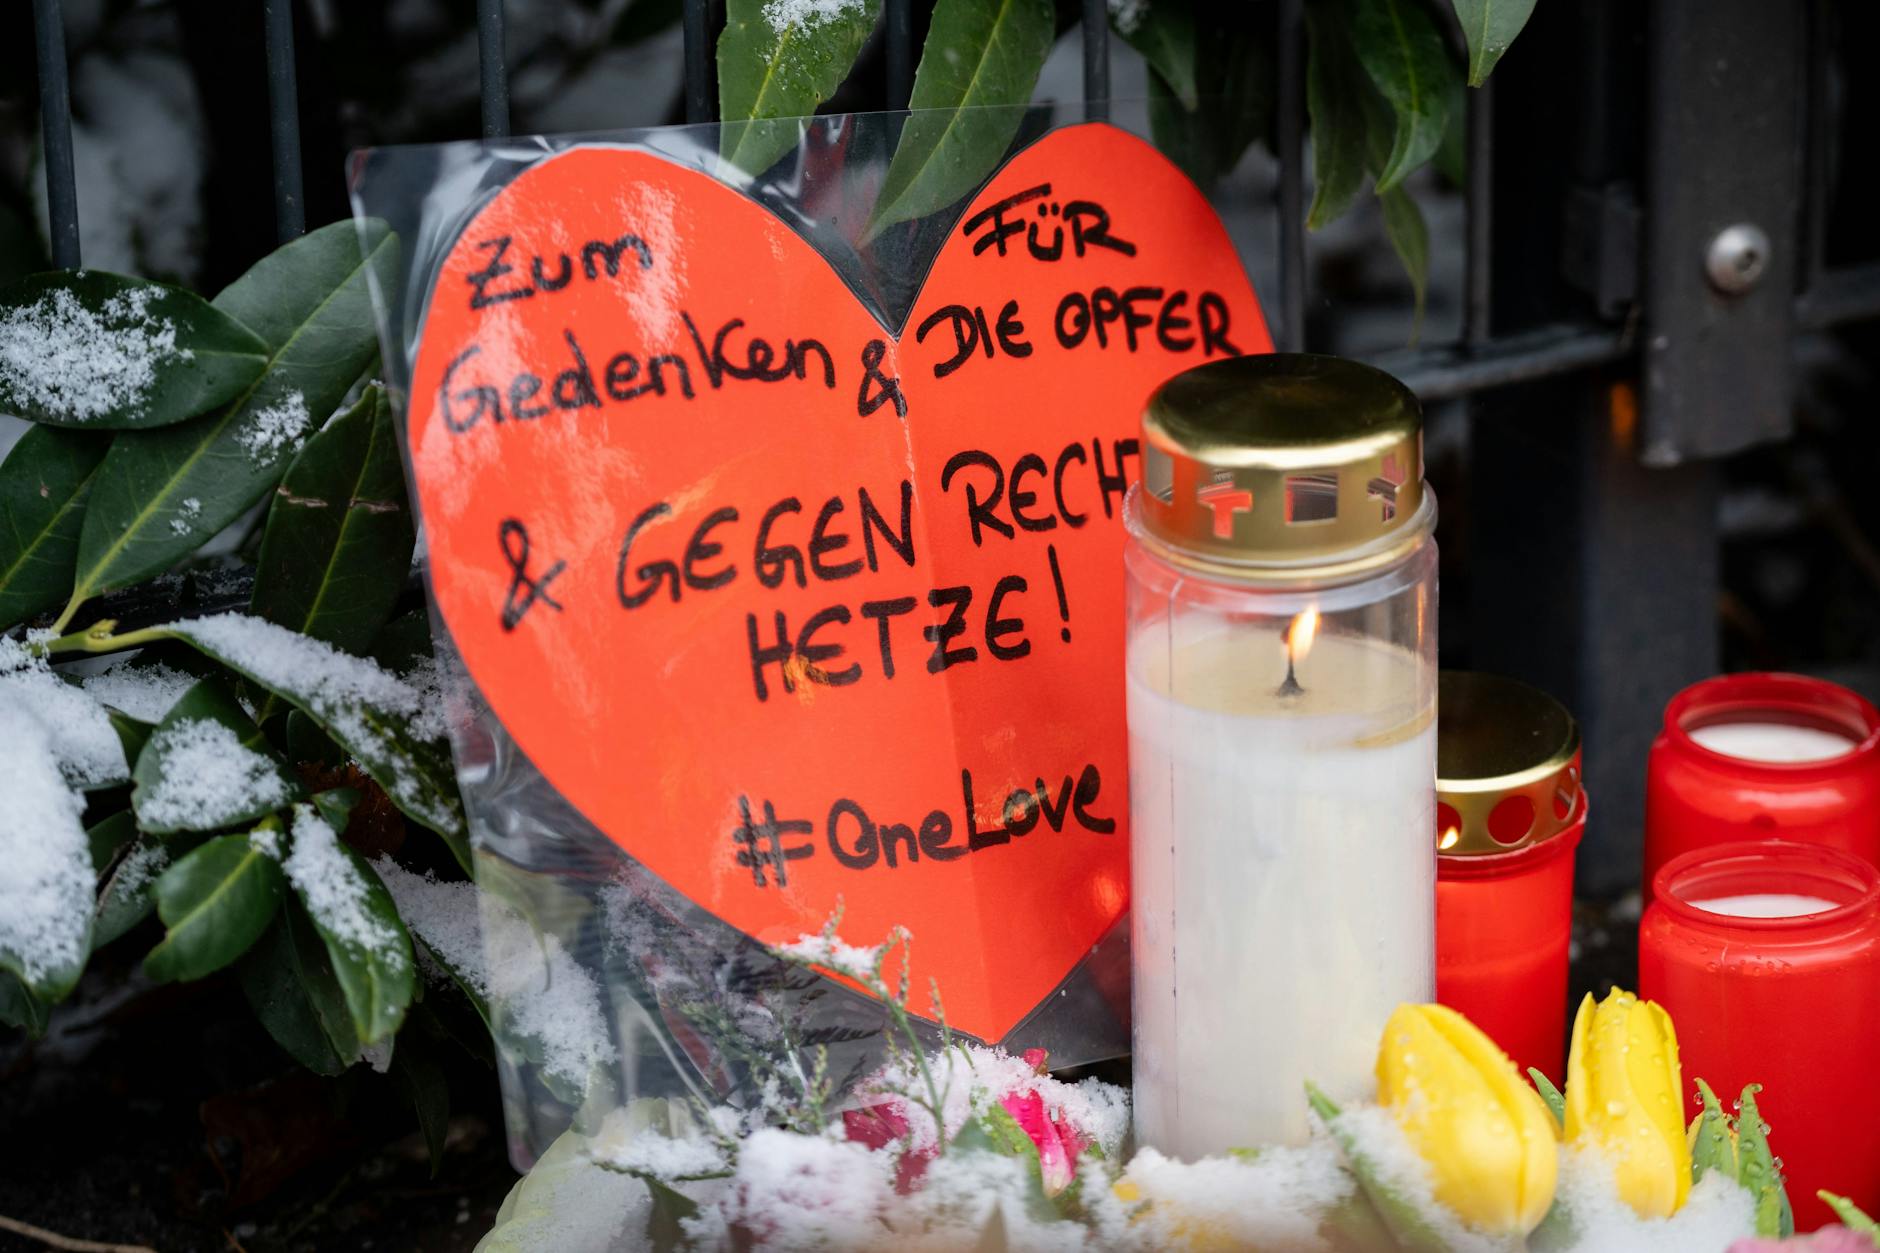 Zum
Gedenken &
FÜR
DIE OPFER
& GEGEN RECHT
HETZE!
#OneLove